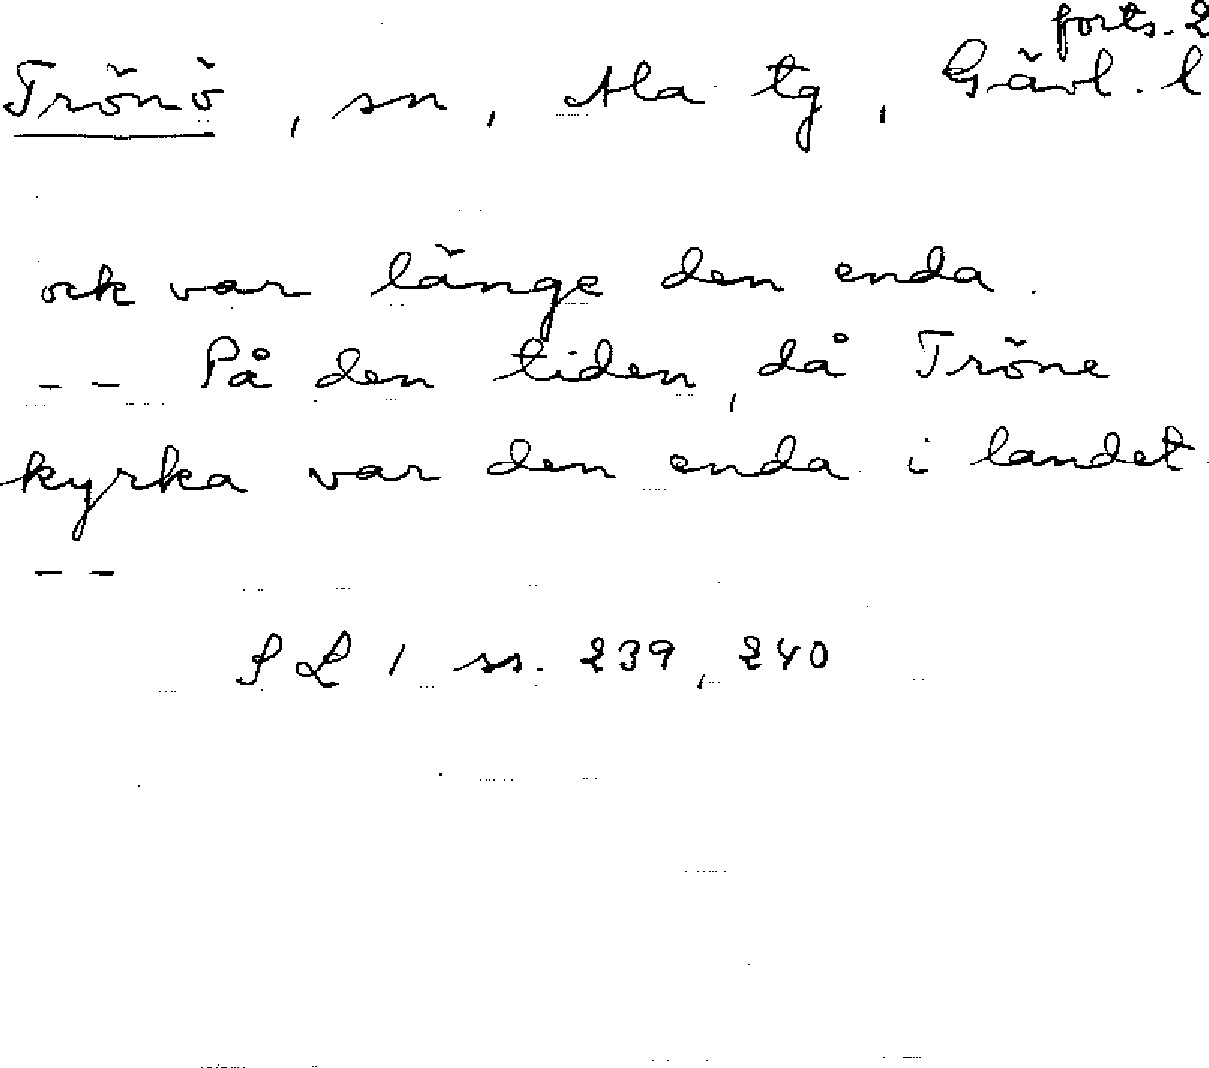 forts. 2
Trönö, sn, Ala tg, Gävl. l
ock var länge den enda.
-- På den tiden, då Tröne
kyrka var den enda i landet
--
SL 1 ss. 239, 240